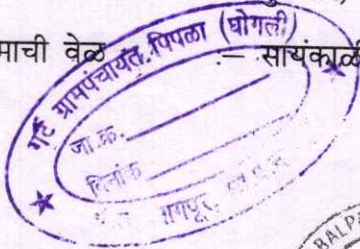 माची वेळ :— सायंकाळी
गट ग्रामपंचायत, पिपळा (घोगली)
जा.क्र.
दिनांक
नागपूर
BALP